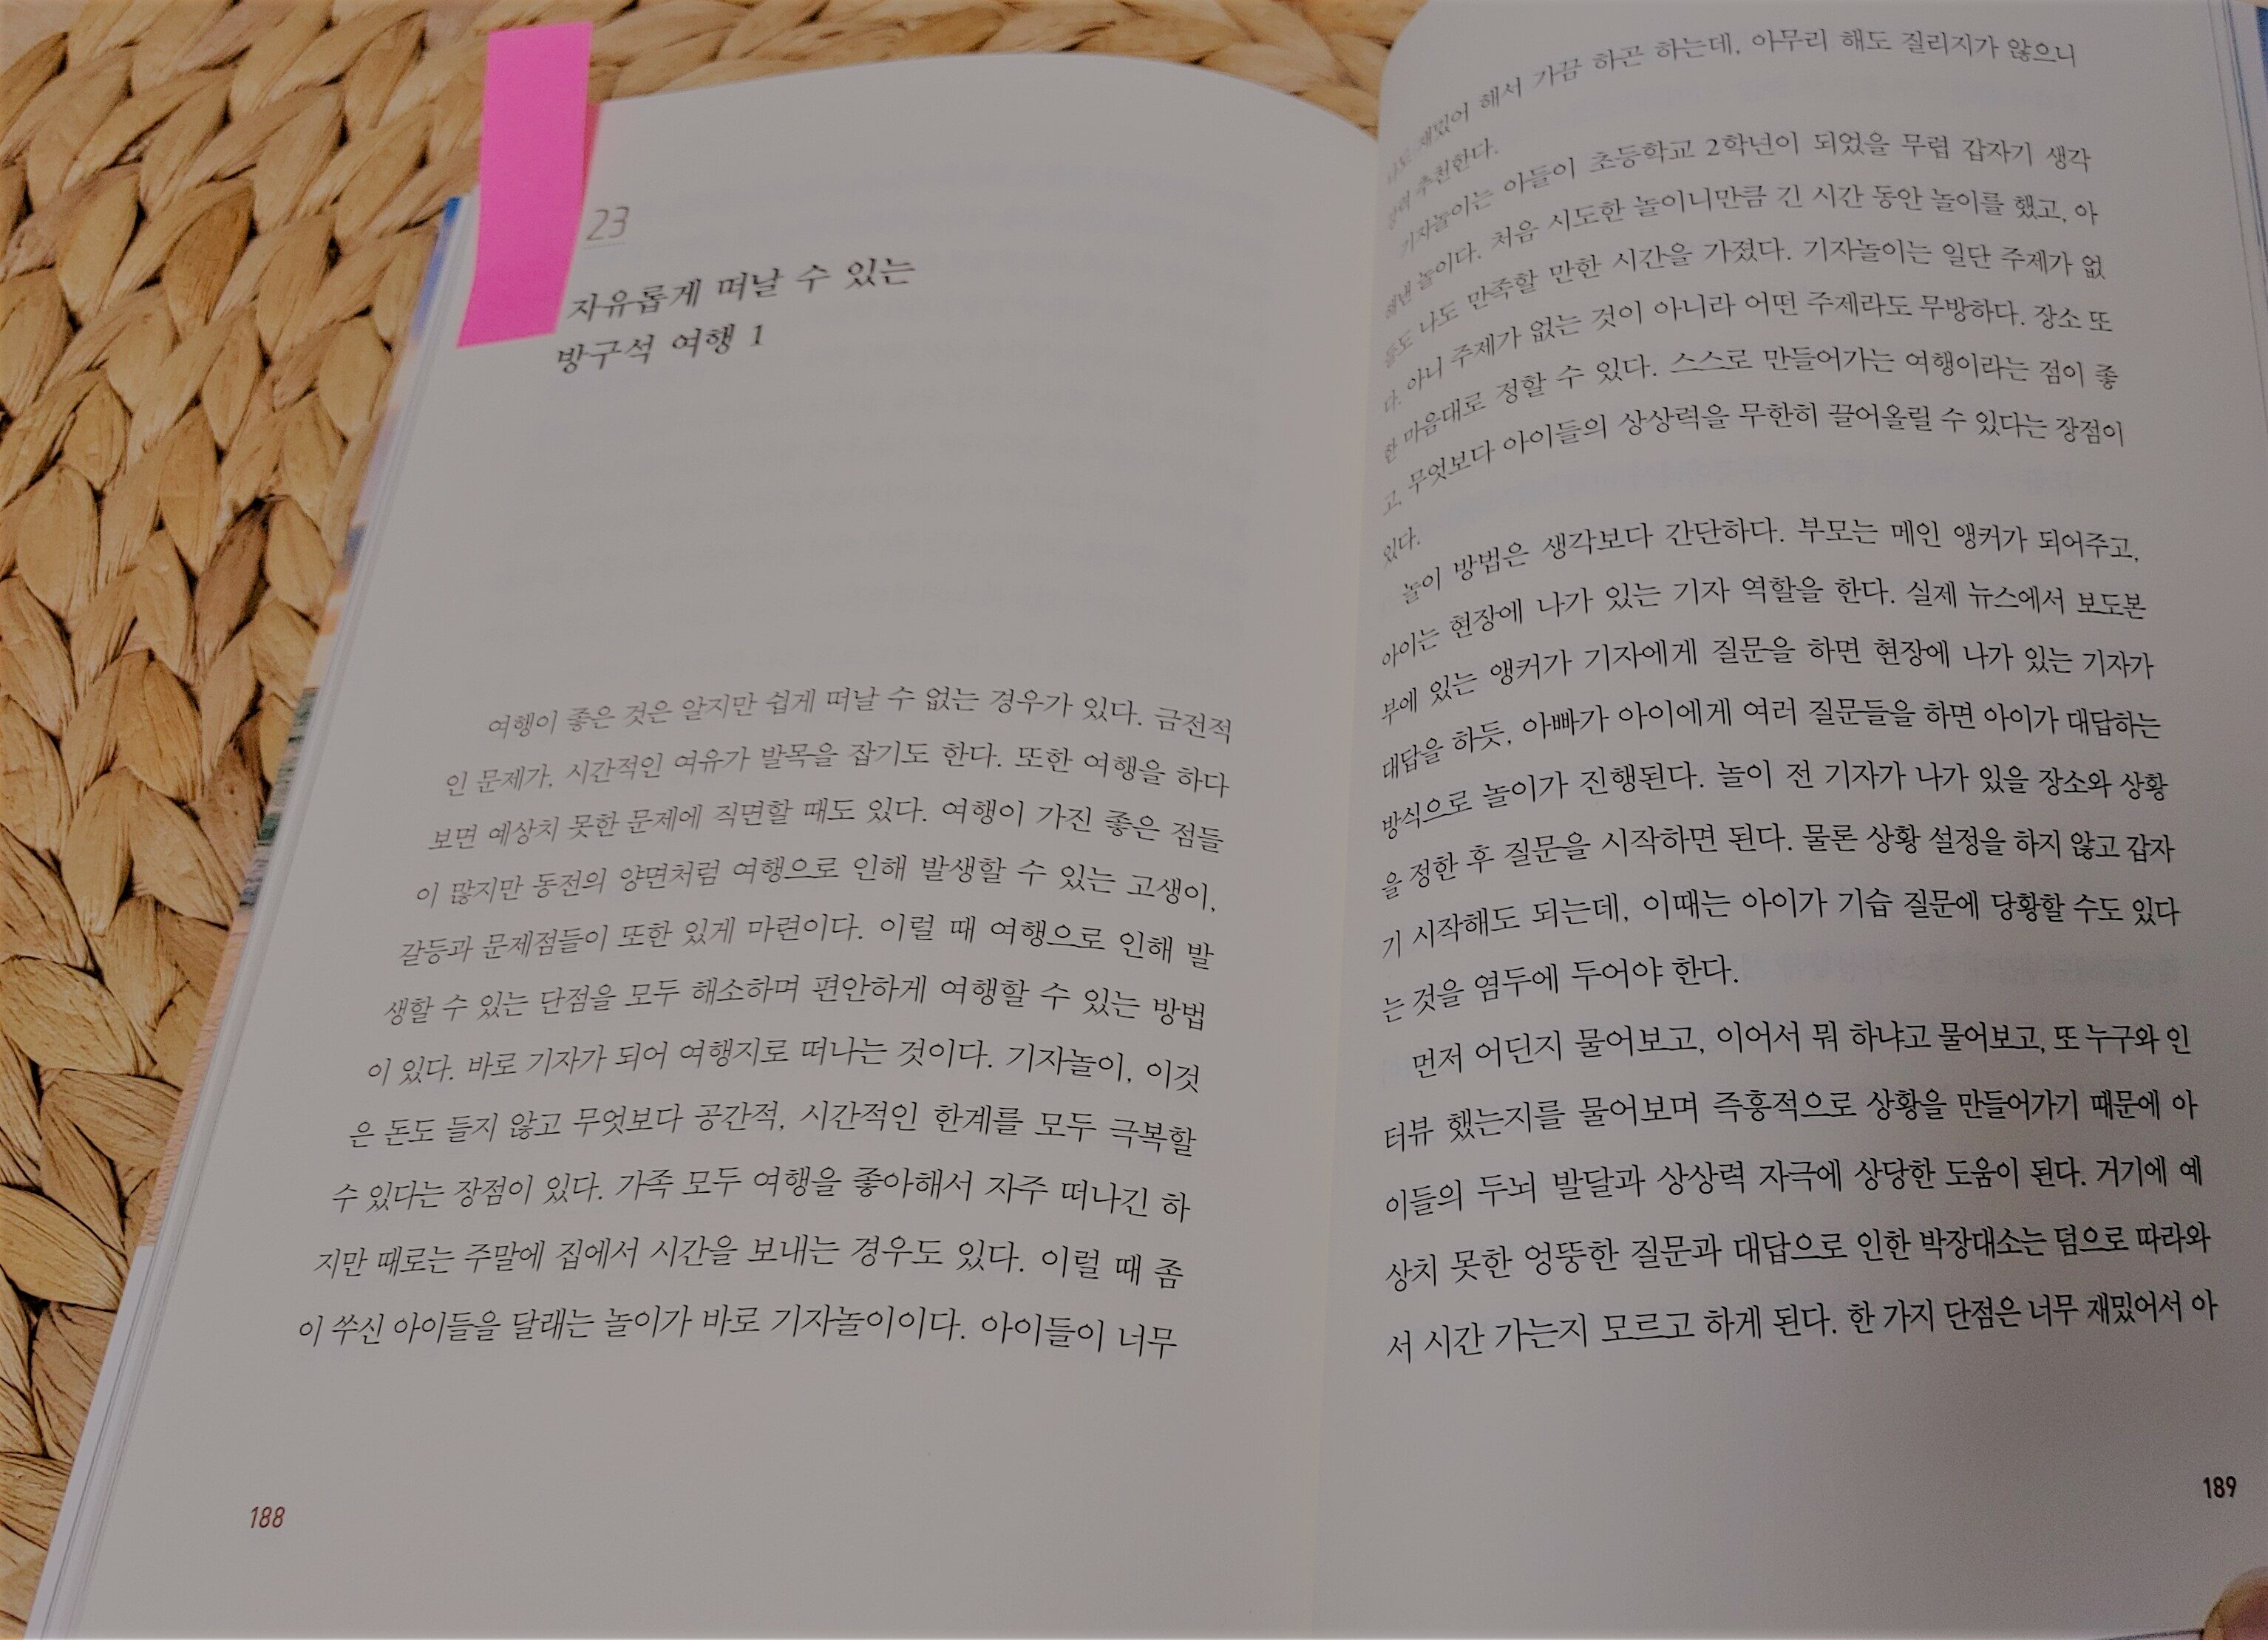 23
자유롭게 떠날 수 있는
방구석 여행 1
여행이 좋은 것은 알지만 쉽게 떠날 수 없는 경우가 있다. 금전적
인 문제가, 시간적인 여유가 발목을 잡기도 한다. 또한 여행을 하다
보면 예상치 못한 문제에 직면할 때도 있다. 여행이 가진 좋은 점들
이 많지만 동전의 양면처럼 여행으로 인해 발생할 수 있는 고생이,
갈등과 문제점들이 또한 있게 마련이다. 이럴 때 여행으로 인해 발
생할 수 있는 단점을 모두 해소하며 편안하게 여행할 수 있는 방법
이 있다. 바로 기자가 되어 여행지로 떠나는 것이다. 기자놀이, 이것
은 돈도 들지 않고 무엇보다 공간적, 시간적인 한계를 모두 극복할
수 있다는 장점이 있다. 가족 모두 여행을 좋아해서 자주 떠나긴 하
지만 때로는 주말에 집에서 시간을 보내는 경우도 있다. 이럴 때 좀
이 쑤신 아이들을 달래는 놀이가 바로 기자놀이이다. 아이들이 너무
188
재밌어 해서 가끔 하곤 하는데, 아무리 해도 질리지가 않으니
추천한다.
기자놀이는 아들이 초등학교 2학년이 되었을 무렵 갑자기 생각
해낸 놀이다. 처음 시도한 놀이니만큼 긴 시간 동안 놀이를 했고, 아
들도 나도 만족할 만한 시간을 가졌다. 기자놀이는 일단 주제가 없
다. 아니 주제가 없는 것이 아니라 어떤 주제라도 무방하다. 장소 또
한 마음대로 정할 수 있다. 스스로 만들어가는 여행이라는 점이 좋
고, 무엇보다 아이들의 상상력을 무한히 끌어올릴 수 있다는 장점이
있다.
놀이 방법은 생각보다 간단하다. 부모는 메인 앵커가 되어주고,
아이는 현장에 나가 있는 기자 역할을 한다. 실제 뉴스에서 보도본
부에 있는 앵커가 기자에게 질문을 하면 현장에 나가 있는 기자가
대답을 하듯, 아빠가 아이에게 여러 질문들을 하면 아이가 대답하는
방식으로 놀이가 진행된다. 놀이 전 기자가 나가 있을 장소와 상황
을 정한 후 질문을 시작하면 된다. 물론 상황 설정을 하지 않고 갑자
기 시작해도 되는데, 이때는 아이가 기습 질문에 당황할 수도 있다
는 것을 염두에 두어야 한다.
먼저 어딘지 물어보고, 이어서 뭐 하냐고 물어보고, 또 누구와 인
터뷰 했는지를 물어보며 즉흥적으로 상황을 만들어가기 때문에 아
이들의 두뇌 발달과 상상력 자극에 상당한 도움이 된다. 거기에 예
상치 못한 엉뚱한 질문과 대답으로 인한 박장대소는 덤으로 따라와
서 시간 가는지 모르고 하게 된다. 한 가지 단점은 너무 재밌어서 아
189